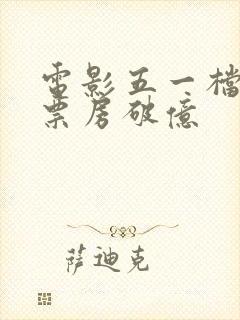 電影五一檔
票房破億
萨迪克